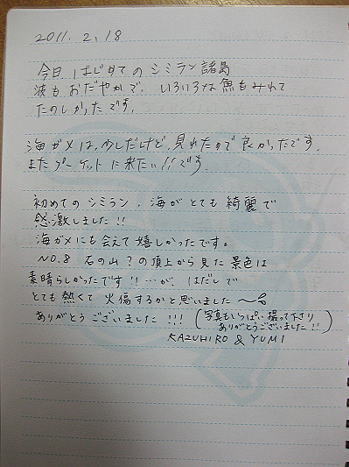 2011. 2. 18
今日 はじめての シミラン 諸島
波も おだやかで、いろいろな 魚も みれて
たのしかったです。
海ガメは、少しだけど、見れたので 良かったです。
また プーケットに 来たい!! です
初めての シミラン、海が とても 綺麗で
感激しました!!
海ガメにも 会えて 嬉しかったです。
～NO.8 石の山？の 頂上から 見た 景色は
素晴らしかったです!! …が、はだしで
とても 熱くて 火傷するかと思いました～
ありがとう ございました !!! (写真もいっぱい 撮って下さり
ありがとうございました!!)
KAZUHIRO & YUMI